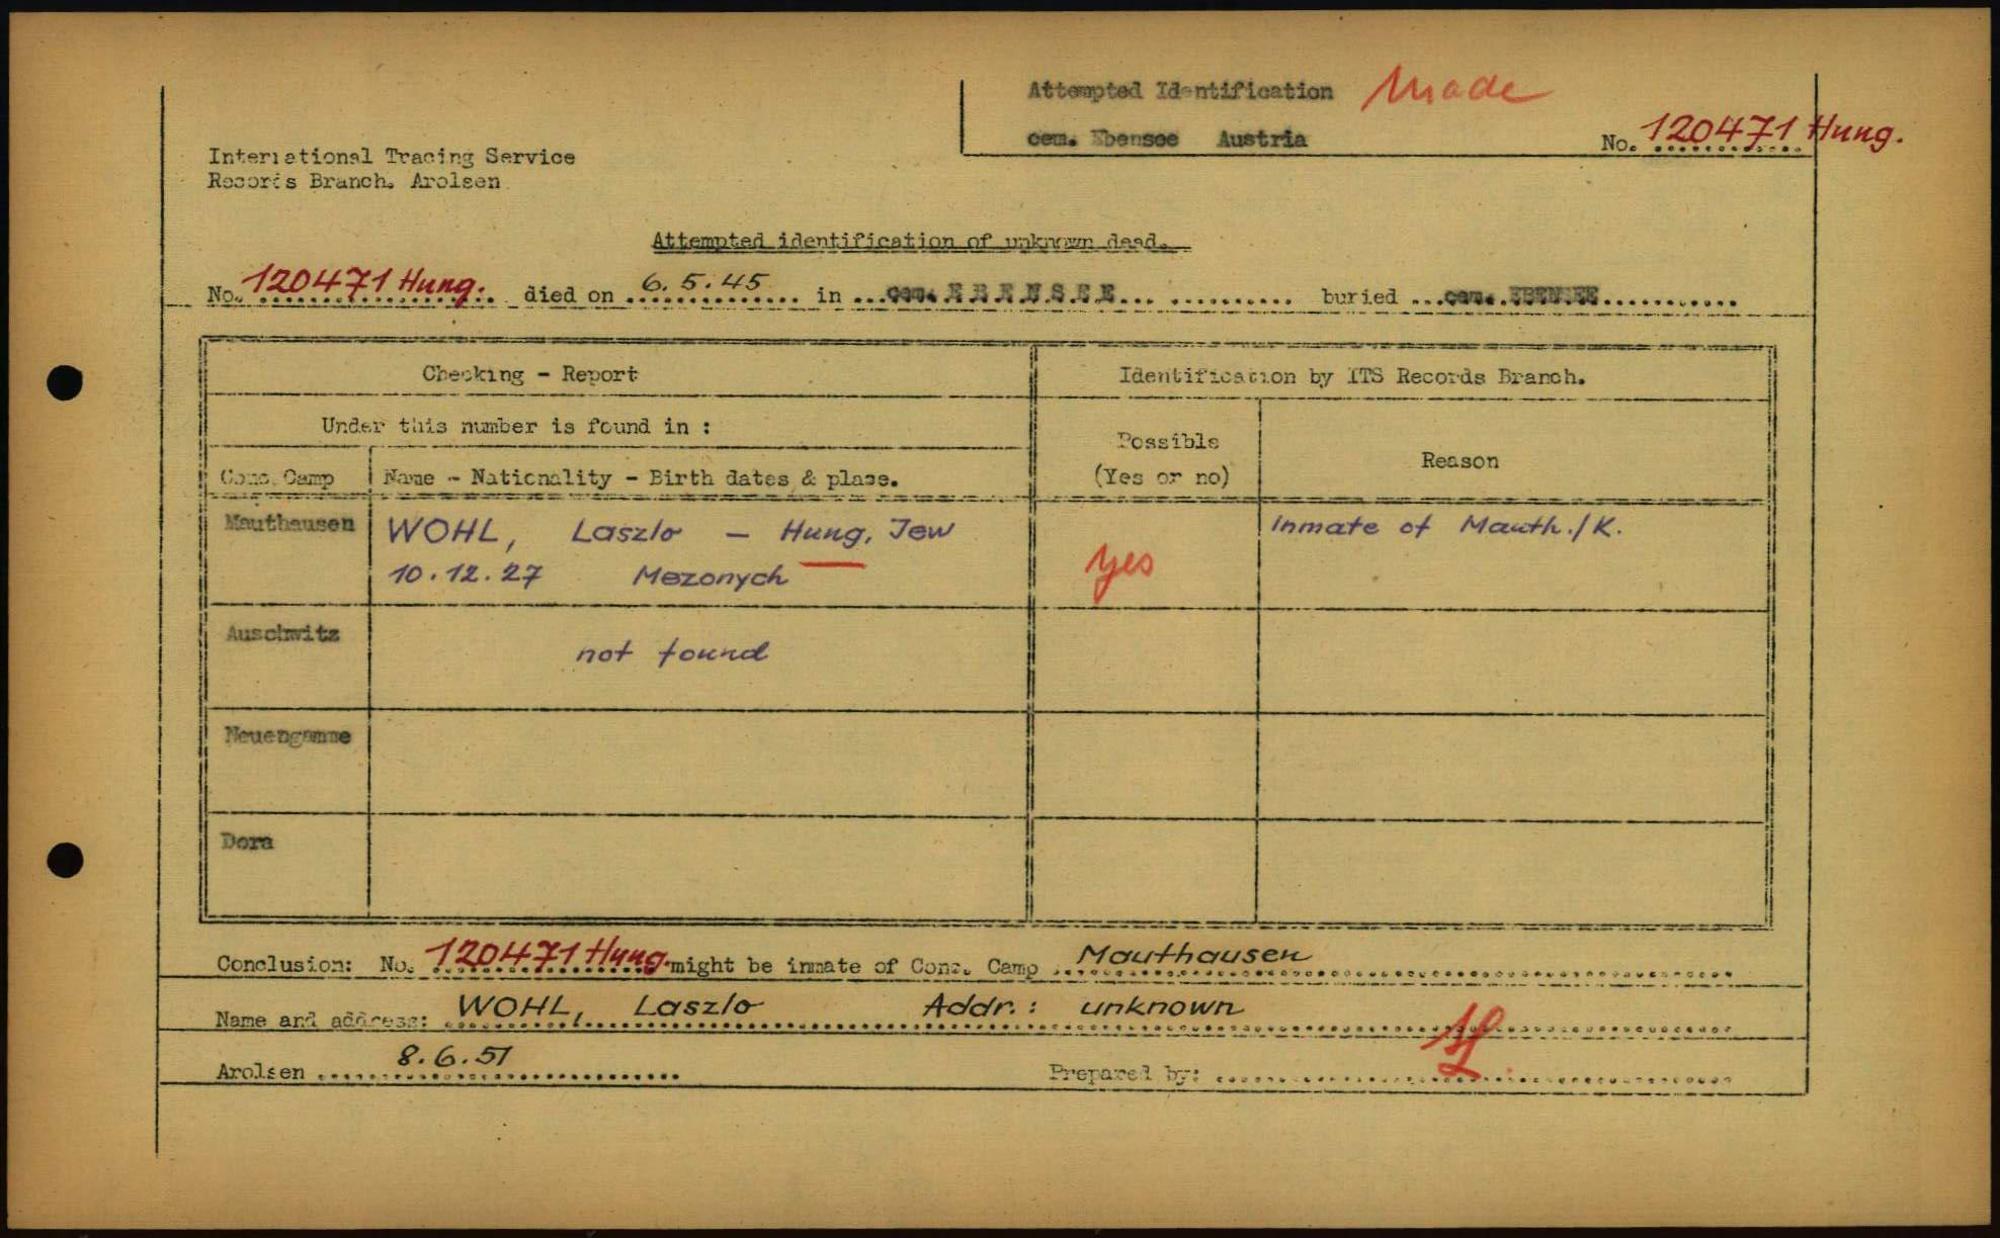 Attempted Identification Made
cem. Ebensee Austria
No. 120471 Hung.
International Tracing Service
Records Branch. Arolsen
Attempted identification of unknown dead.
No. 120471 Hung. died on 6.5.45 in cem. EBENSEE buried cem. EBENSEE
Checking - Report
Identification by ITS Records Branch.
Under this number is found in :
Possible
(Yes or no)
Reason
Conc. Camp
Name - Nationality - Birth dates & place.
Mauthausen
WOHL, Laszlo - Hung, Jew
10.12.27 Mezonych
yes
inmate of Mauth./K.
Auschwitz
not found
Neuengamme
Dora
Conclusion: No. 120471 Hung. might be inmate of Conc. Camp Mauthausen
Name and address: WOHL, Laszlo Addr.: unknown
Arolsen 8.6.51
Prepared by: